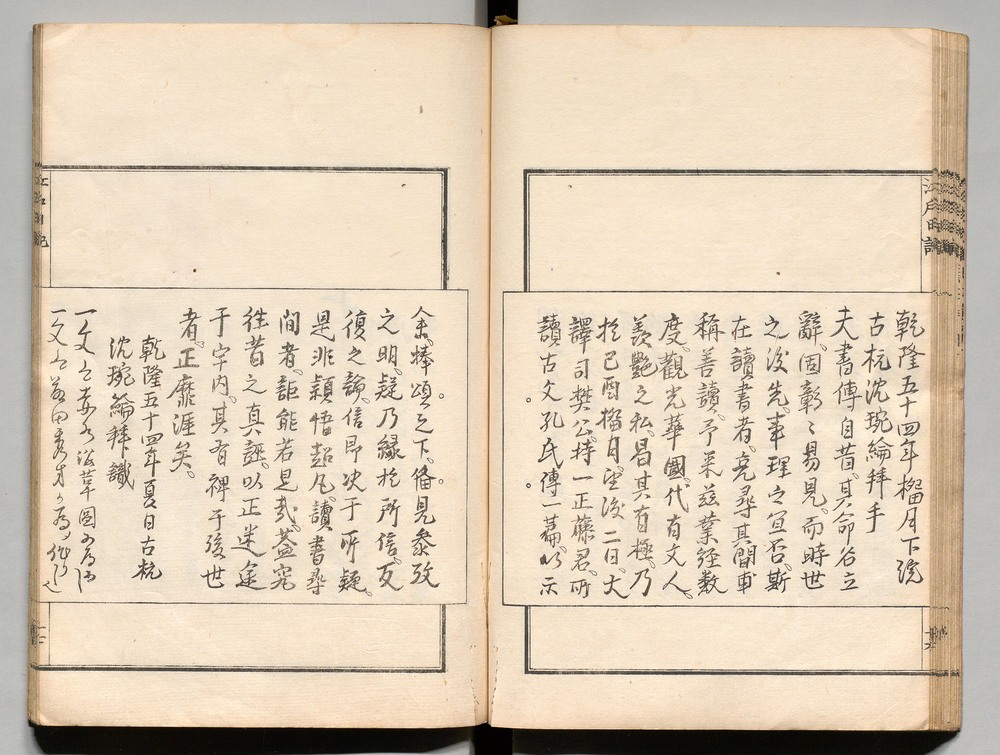 乾隆五十四年榴月下浣
古杭沈琬綸拜手
夫書傳自昔其命各立
辭固彰〻易見而時世
之後先事理之宜否斯
在讀書者亮尋其間車
稱善讀予来茲業經数
度觀光華國代有文人
羨艷之私曷其有極乃
於己酉榴月望後二日大
譯司樊公持一正藤君所
讀古文孔氏傳一篇以示
余捧頌之下備見參攷
之明疑乃縁於所信反
復之論信即决于所疑
是非穎悟超凡讀書尋
間者詎能若是哉蓋究
往昔之真誣以正迷途
于宇内其有裨于後世
者正靡涯矣
乾隆五十四年夏日古杭
沈琬綸拜識